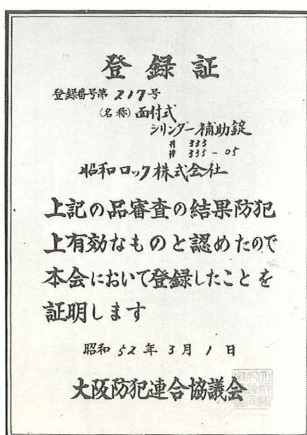 登録証
登録番号第217号
(名称)面付式
シリンダー補助錠
# 333
# 335-05
昭和ロック株式会社
上記の品審査の結果防犯
上有効なものと認めたので
本会において登録したことを
証明します
昭和52年3月1日
大阪防犯連合協議会